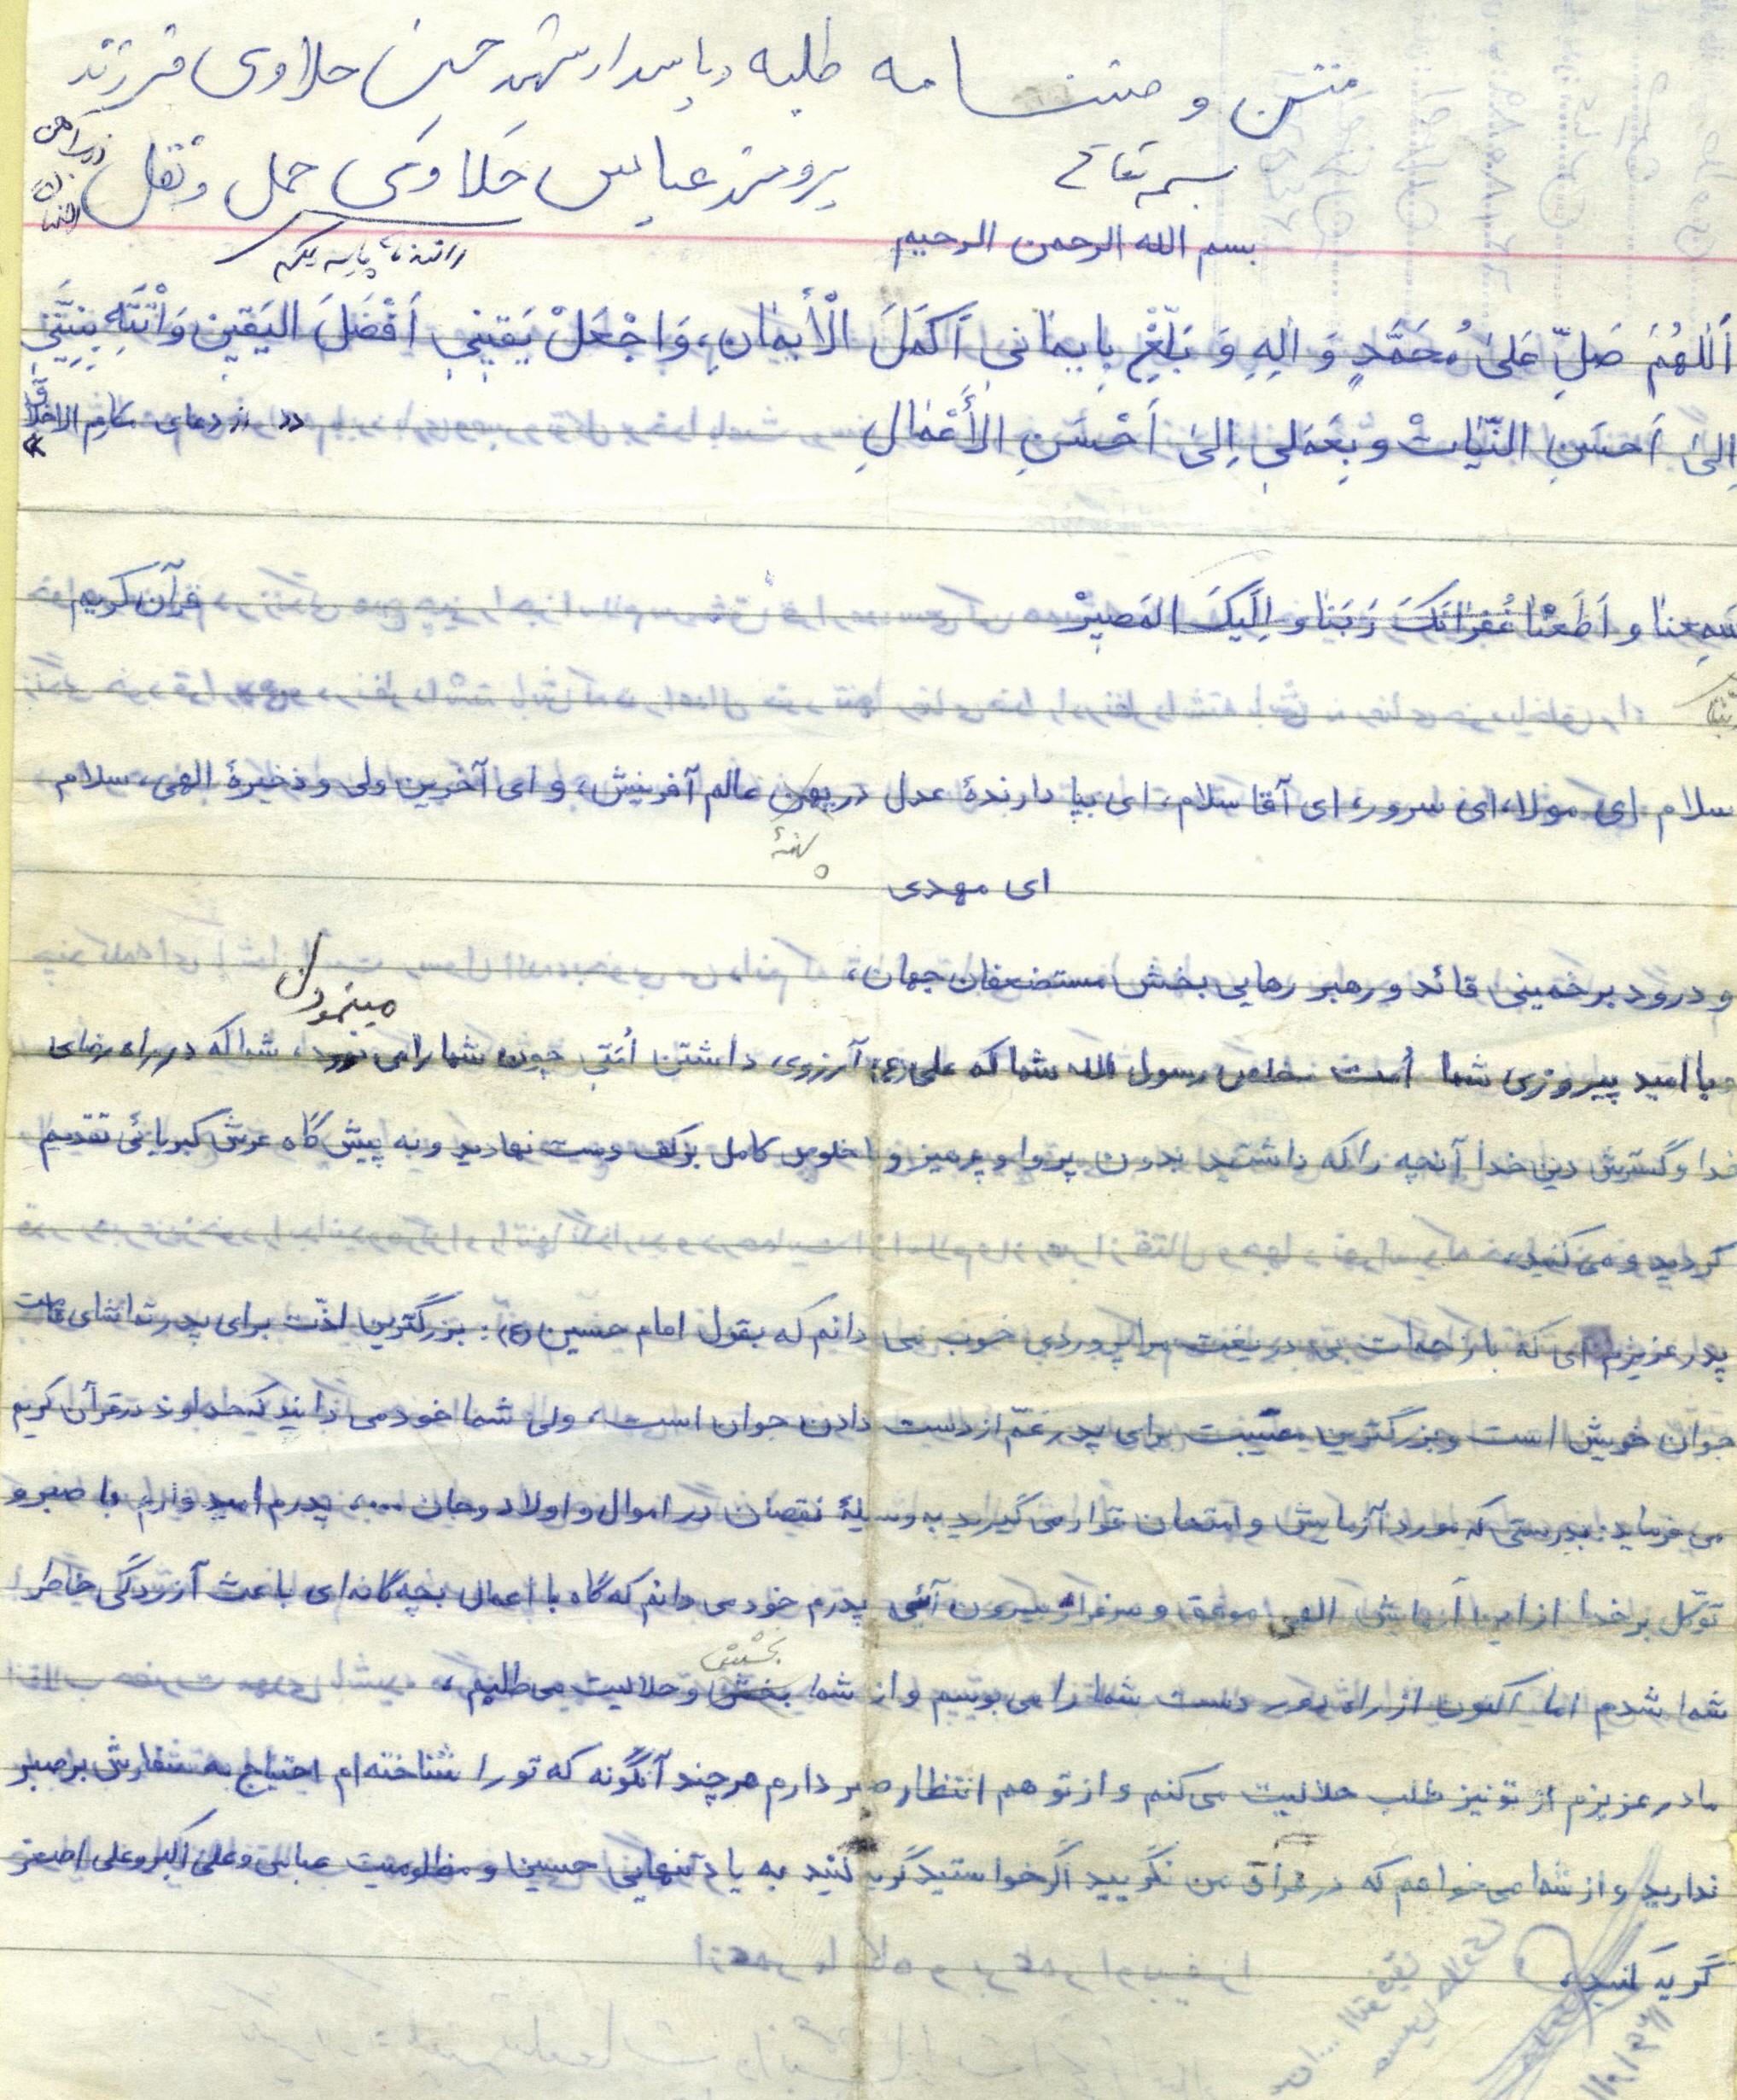 متن وصیتنامه طلبه و پاسدار شهید حسین حلاوی فرزند
بسمه تعالی
پرویز عباس حلاوی حمل و نقل
بسم الله الرحمن الرحیم
اَللّهُمَ صَلِّ عَلیٰ مُحَمَّدٍ وَ الِهِ وَ بَلِّغْ بِایمٰانی اَکمَلَ الْأیمٰانِ، وَاجْعَلْ یَقینِی اَفْضَلَ الیَقینِ وَانْتَهِ بِنِیَّتِی
اِلیٰ اَحسَنِ النّیّاتْ و بِعَمَلی اِلیٰ اَحْسَنِ الأَعْمٰالِ
از دعای مکارم الاخلاق
سَمِعنا و اَطَعْنٰا غُفرٰانَکَ رَبَنٰا و اِلَیکَ المَصیرْ
قرآن کریم
سلام ای مولا، ای سرور، ای آقا سلام، ای بپا دارندهٔ عدل در پهن عالم آفرینش، و ای آخرین ولی و ذخیرهٔ الهی، سلام
پهنهٔ
ای مهدی
و درود بر خمینی قائد و رهبر رهایی بخش مستضعفان جهان،
مینمود
و با امید پیروزی شما اُمت مخلص رسول الله شما که علی (ع) آرزوی داشتن اُمَتی چون شما را می نمود، شما که در راه رضای
خدا و گسترش دین خدا آنچه را که داشتید بدون پروا و پرهیز و اخلاص کامل برکف دست نهادید و به پیش گاه عرش کبریائی تقدیم
کردید و می کنید،
پدر عزیزم ای که با زحمات بی دریغت مرا پروردی خوب می دانم که بقول امام حسین (ع): بزرگترین لذّت برای پدر تماشای قامت
جوان خویش است و بزرگترین مصیبت برای پدر غمّ از دست دادن جوان است، ولی شما خود می دانید که خداوند در قرآن کریم
می فرماید: بدرستی که مورد آزمایش و امتحان قرار می گیرید به وسیلهٔ نقصان در اموال و اولاد و جان ....، پدرم امید وارم با صبر و
توکّل بر خدا از این آزمایش الهی موفق و سرفراز بیرون آئی پدرم خود می دانم که گاه با اعمال بچه گانه ای باعث آزردگی خاطر
بخشش
شما شدم اما اکنون از راه دور دست شما را می بوسم و از شما بخش و حلالیت می طلبم،
مادر عزیزم از تو نیز طلب حلالیت می کنم و از تو هم انتظار صبر دارم هر چند آنگونه که تو را شناخته ام احتیاج به سفارش بر صبر
ندارید و از شما می خواهم که در فراق من نگریید اگر خواستید گریه کنید به یاد تنهایی حسین و مظلومیت عباس و علی اکبر و علی اصغر
گریه کنید،